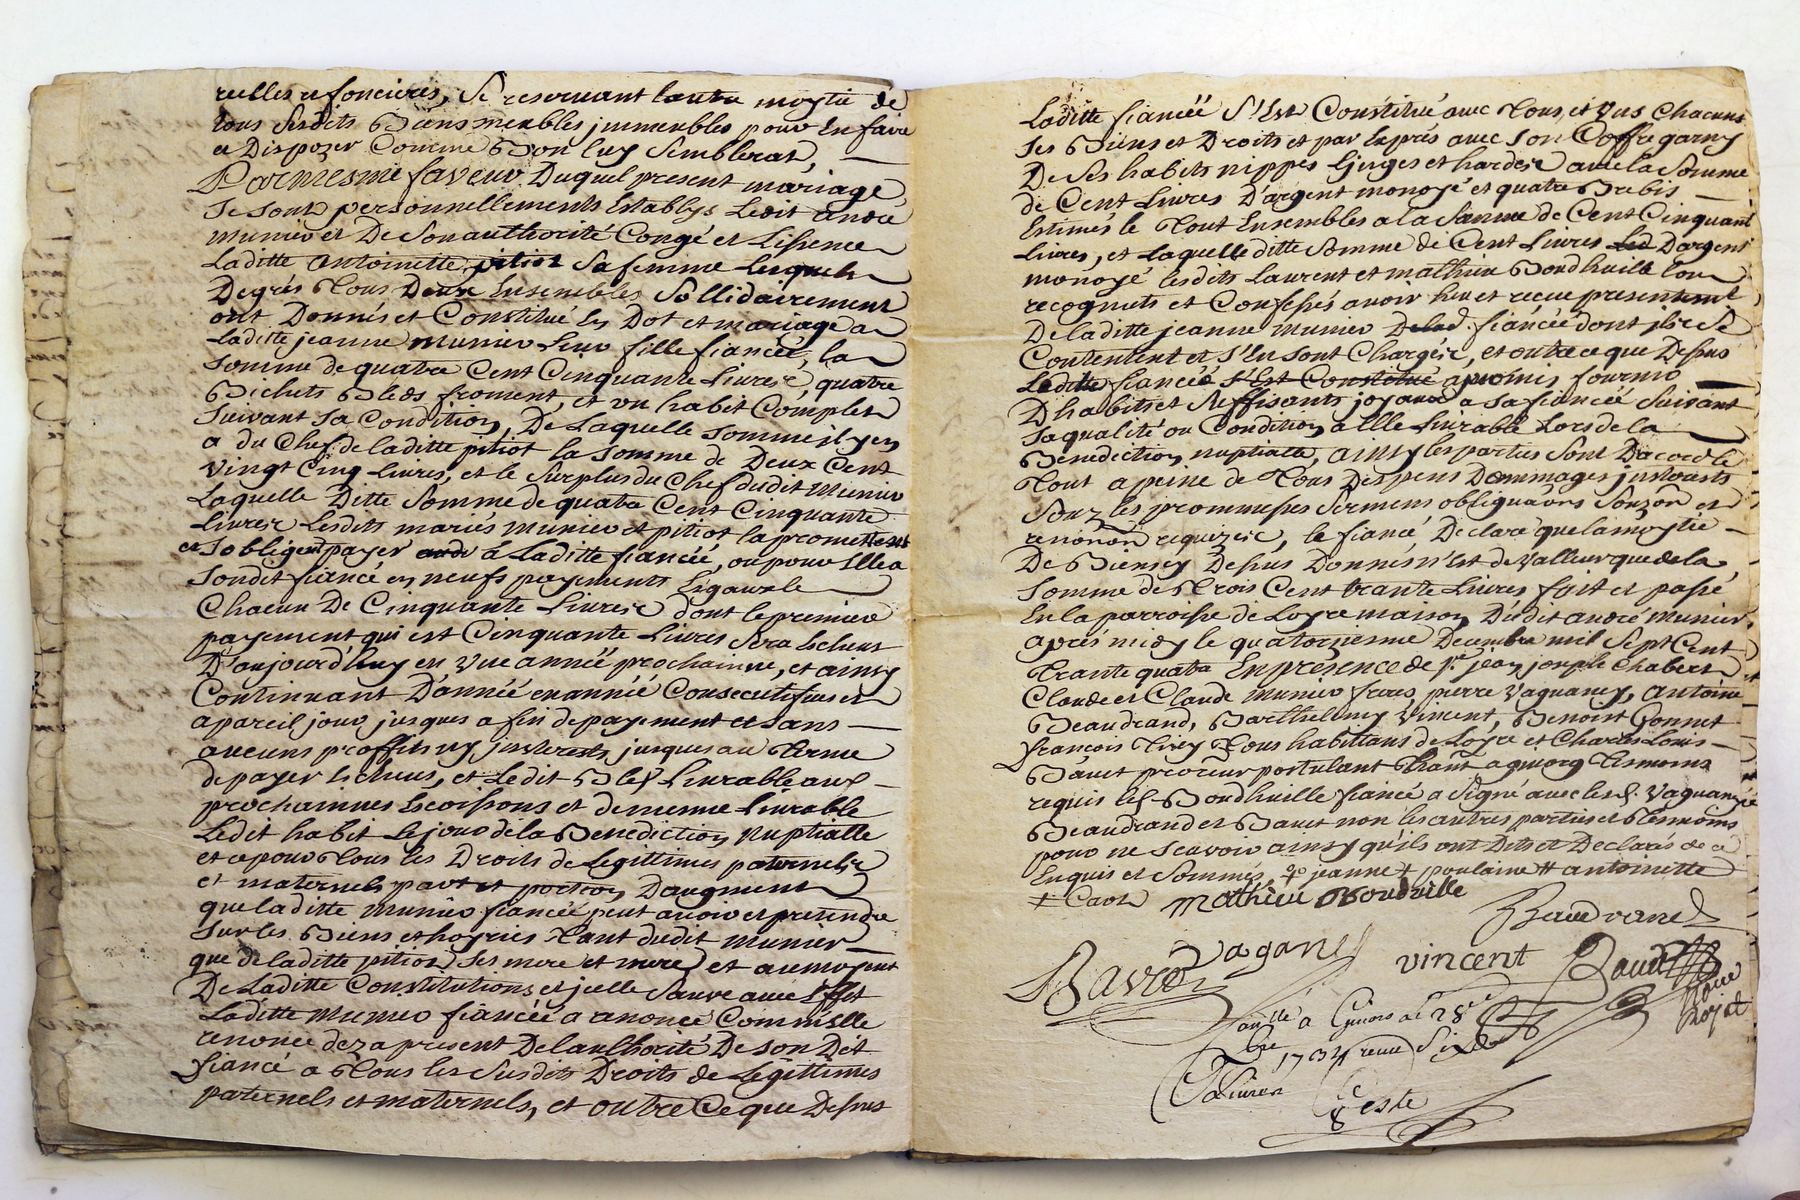 reelles et foncieres, Se reservant lautre moytié de
tous Sesdits Biens meubles jmmeubles pour En faire
et Dispozer Comme Bon luy Semblerat,
Parmesme faveur Duquel present mariage
Se Sont personnellements Establys Ledit andré
Munier et De Son authorité Congé et Lissence
Laditte antoinette pitiot Sa femme Lesquels
Degrés Tous Deux Ensembles Sollidairement
ont Donnés et Constitué En Dot et mariage a
Laditte jeanne Munier Leur fille fiancéé, la
Somme de quatre Cent Cinquante Livres, quatre
Bichets Bleds froment, et un habit Complet
Suivant Sa Condition, De Laquelle Somme il y en
a du Chef de laditte pitiot la Somme de Deux Cent
Vingt Cinq Livres, et le Surplus du Chef dudit Munier
Laquelle Ditte Somme de quatre Cent Cinquante
Livres Lesdits mariés Munier et pitiot la promettent
et Sobligent payer a Laditte fiancéé, ou pour Elle a
Sondit fiancé en neufs payements Egaux le
Chacun De Cinquante Livres dont le premier
payement qui est Cinquante Livres Sera Echeut
D'aujourd'huy en Une annéé prochainne, et ainsy
Continuant D'annéé en annéé Consecutifves et
apareil jour jusques a fin de payement et Sans
aucuns proffits ny jnterests jusques au Terme
de payer Echeus, et Ledit Bled Livrable aux
prochainnes Recoissons et de mesme Livrable
Ledit habit Le jour de la Benediction Nuptialle
et ce pour Tous Les Droits de Legittimes paternels
et maternels part et portion D'augment
que laditte Munier fiancéé peut avoir et pretendre
Sur les Biens et hoyries Tant dudit Munier
que de laditte pitiot Ses pere et mere, et au moyent
De Laditte Constitutions et jcelle Sauve avec Effet
Laditte Munier fiancéé a renoncé Comm'Elle
renonce dez a present De l'authorité De Son Dit
fiancé a Tous les Susdits Droits de Legittimes
paternels et maternels, et outre Ce que Dessus
Laditte fiancéé S'Est Constitué avec Tous et Uns Chacuns
Ses Biens et Droits et par Exprés avec Son Coffre garny
De Ses habits nippes Linges et hardes avec la Somme
de Cent Livres D'argent monoyé et quatre Brebis
Estimés le Tout Ensembles a la Somme de Cent Cinquant
Livres, et Laquelle ditte Somme de Cent Livres Led D'argent
monoyé lesdits Laurent et mathieu Bondhuille l'ont
recognuts et Confessés avoir heu et receue presentement
De laditte jeanne Munier De lad. fiancéé dont jls Se
Contentent et S'En Sont Chargés, et outre ce que Dessus
Ledit fiancéé S'Est Constitué a promis fournir
D'habits et Suffisants joyaux a Sa fiancéé Suivant
Sa qualité ou Condition a Elle Livrable Lors de la
Benediction nuptialle, ainsy les parties Sont D'acord le
Tout a peine de Tous Despens Dommages jnterests
Souz les prommesses Sermens obligations Souzon et
renonon requizes, le fiancé Declare que la moytié
De Biens cy Dessus Donnés n'Est de Valleur que de la
Somme de Trois Cent trante Livres fait et passé
En la parroisse de Loyre maison Dudit andré Munier
aprés midy le quatorzieme Decembre mil Sept Cent
Trante quatre En presence de Sr. jean joseph Chabert
Claude et Claude Munier freres, pierre Vaganay, antoine
Beaudrand, Barthelemy Vincent, Benoist Gonnet
francois Tivey Tous habittans de Loyre et Charles Louis
Bavet procreur postulant Tesmoins
requis led. Bondhuille fiancé a Signé avec lesd. Vaganay
Beaudrand et Bavet non les autres parties et Tesmoins
pour ne Scavoir ainsy qu'ils ont Dit et Declarés de ce
Enquis et Sommés, jeanne + poulaine # antoinette
+ Cent
Mathieu Bondville
Beaudrand
Vaganey
vincent
Bavet
Controllé a Givors le 28e
xbre 1734 receu Six
Tavernier
Geste